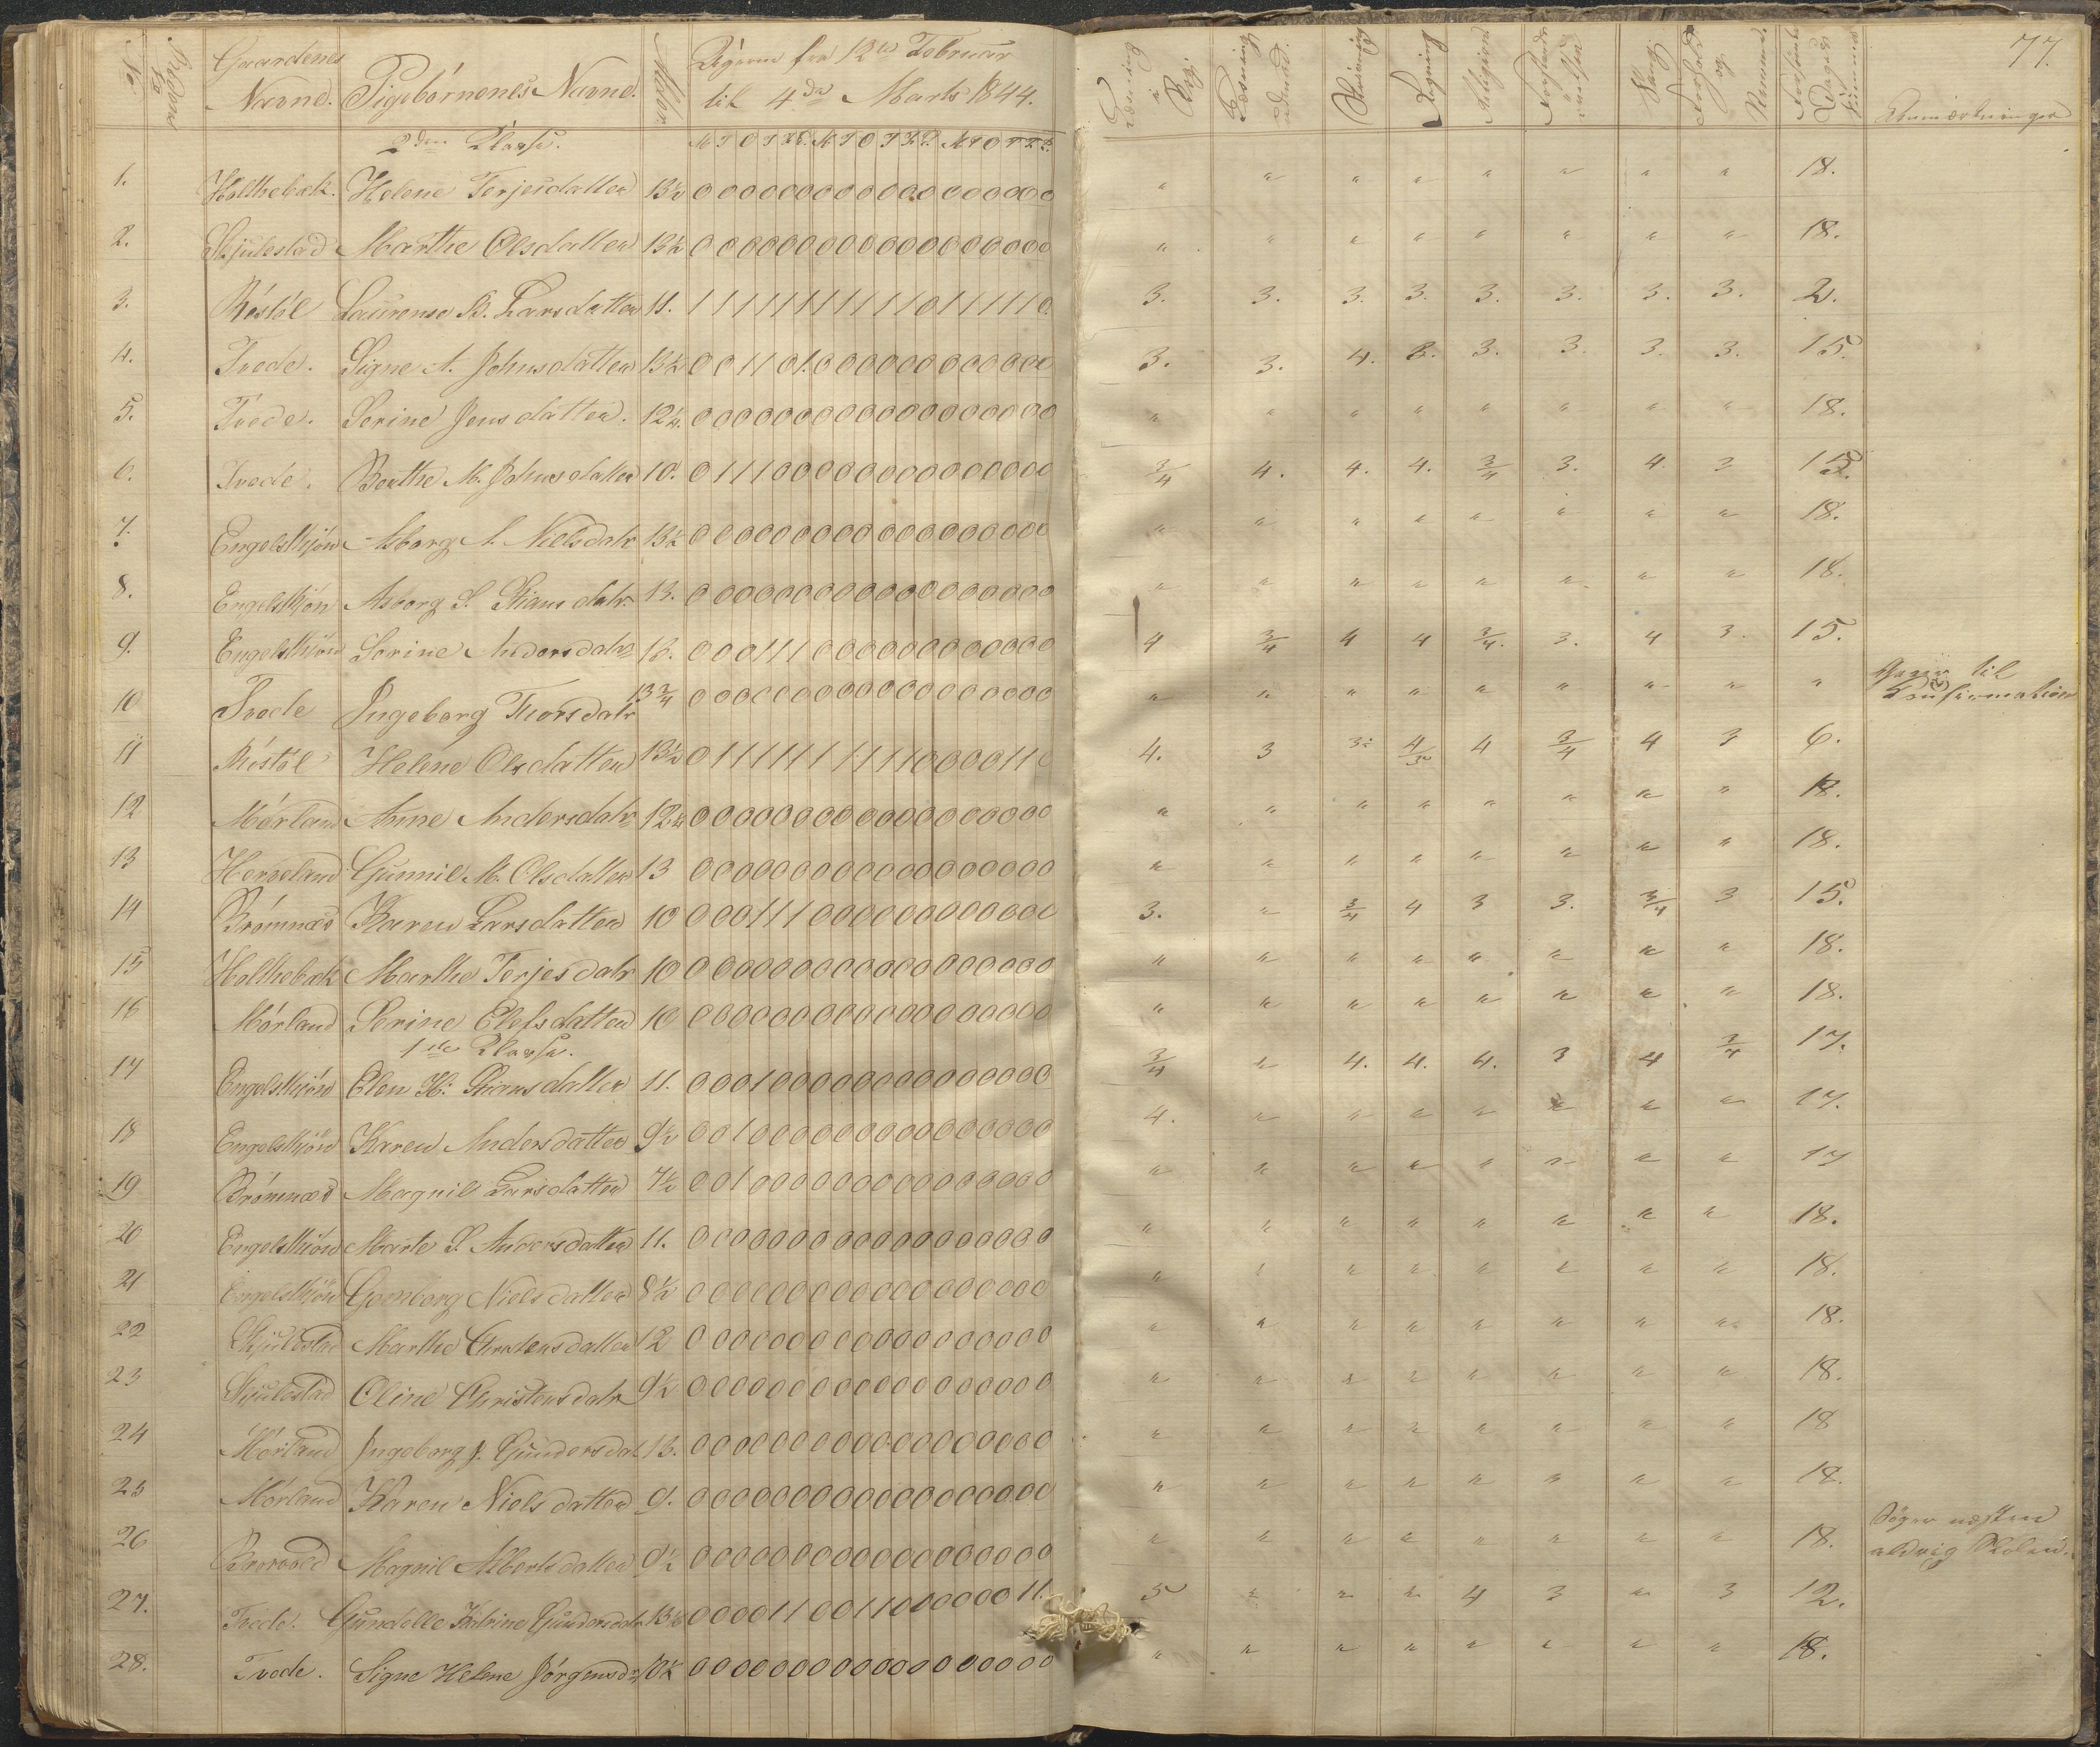 No
Gaardenes Navne.
Pigebørnenes Navne.
Alder.
Dagene fra 12te Februar
til 4de Marts 1844.
Læsning i Bog.
Læsning udenad.
Skrivning
Regning
Religion
Sang
Forhold og
Forsømte Dages
Anmærkninger
77.
2den Classe.
M T O T F L M T O T F L M T O T F L
1. Holthebæk. Helene Terjesdatter 13½ 0 0 0 0 0 0 0 0 0 0 0 0 0 0 0 0 0 0 " " " " " " " " 18.
2. Skjulestad Marthe Olsdatter 13½ 0 0 0 0 0 0 0 0 0 0 0 0 0 0 0 0 0 0 " " " " " " " " 18.
3. Røstøl Laurense B. Larsdatter 11. 1 1 1 1 1 1 1 1 1 1 1 0 1 1 1 1 1 0 3. 3. 3. 3. 3. 3. 3. 3. 2.
4. Tvede. Signe A. Johnsdatter 13½ 0 0 1 1 0 1 0 0 0 0 0 0 0 0 0 0 0 0 3. 3. 4. 3. 3. 3. 3. 3. 15.
5. Tvede. Serine Jensdatter. 12½. 0 0 0 0 0 0 0 0 0 0 0 0 0 0 0 0 0 0 " " " " " " " " 18.
6. Tvede. Berthe M. Johnsdatter 10. 0 1 1 1 0 0 0 0 0 0 0 0 0 0 0 0 0 0 3/4 4. 4. 4. 3/4 3. 4 3 15.
7. Engelskjøn Asborg A. Nielsdatr 13½ 0 0 0 0 0 0 0 0 0 0 0 0 0 0 0 0 0 0 " " " " " " " " 18.
8. Engelskjøn Asborg S. datr. 13. 0 0 0 0 0 0 0 0 0 0 0 0 0 0 0 0 0 0 " " " " " " " " 18.
9. Engelskjøn Serine Andersdatr 13. 0 0 0 1 1 1 0 0 0 0 0 0 0 0 0 0 0 0 4 3/4 4 4 3/4. 3. 4 3. 15.
10 Tvede Ingeborg Thorsdatr 13 3/4 0 0 0 0 0 0 0 0 0 0 0 0 0 0 0 0 0 0 " " " " " " " " " til
Confirmation
11 Røstøl Helene Olsdatter 13½ 0 1 1 1 1 1 1 1 1 1 1 0 0 0 0 1 1 0 4. 3 3 4/3 4 3/4 4 3 6.
12 Mørland Anne Andersdatr 12½ 0 0 0 0 0 0 0 0 0 0 0 0 0 0 0 0 0 0 " " " " " " " " 18.
13 Herseland Gunnil M. Olsdatter 13 0 0 0 0 0 0 0 0 0 0 0 0 0 0 0 0 0 0 " " " " " " " " 18.
14 Brømnæs Karen Larsdatter 10 0 0 0 1 1 1 0 0 0 0 0 0 0 0 0 0 0 0 3. " 3/4 4 3 3. 3/4 3 15.
15 Holthebæk Marthe Terjesdatr 10 0 0 0 0 0 0 0 0 0 0 0 0 0 0 0 0 0 0 " " " " " " " " 18.
16 Mørland Serine Elefsdatter 10 0 0 0 0 0 0 0 0 0 0 0 0 0 0 0 0 0 0 " " " " " " " " 18.
1ste Classe.
17 Engelskjøn Elen H. datter 11. 0 0 0 1 0 0 0 0 0 0 0 0 0 0 0 0 0 0 3/4 " 4. 4. 4. 3 4 3/4 17.
18 Engelskjøn Karen Andersdatter 9½ 0 0 1 0 0 0 0 0 0 0 0 0 0 0 0 0 0 0 4. " " " " " " " 17.
19 Brømnæs Magnil Larsdatter 7½ 0 0 1 0 0 0 0 0 0 0 0 0 0 0 0 0 0 0 " " " " " " " " 17
20 Engelskjøn Marte S. Andersdatter 11. 0 0 0 0 0 0 0 0 0 0 0 0 0 0 0 0 0 0 " " " " " " " " 18.
21 Engelskjøn Gomborg Nielsdatter 8½ 0 0 0 0 0 0 0 0 0 0 0 0 0 0 0 0 0 0 " " " " " " " " 18.
22 Skjulestad Marthe Christensdatter 12 0 0 0 0 0 0 0 0 0 0 0 0 0 0 0 0 0 0 " " " " " " " " 18.
23 Skjulestad Oline Christensdatr 9½ 0 0 0 0 0 0 0 0 0 0 0 0 0 0 0 0 0 0 " " " " " " " " 18.
24 Mørland Ingeborg J. Gundersdat 13. 0 0 0 0 0 0 0 0 0 0 0 0 0 0 0 0 0 0 " " " " " " " " 18
25 Mørland Karen Nielsdatter 9. 0 0 0 0 0 0 0 0 0 0 0 0 0 0 0 0 0 0 " " " " " " " " 18.
26 Magnil Albertsdatter 9½ 0 0 0 0 0 0 0 0 0 0 0 0 0 0 0 0 0 0 " " " " " " " " 18. Søger næsten
aldrig Skolen.
27. Tvede. Gundelle Katrine Gundersdatr 13½ 0 0 0 0 1 1 0 0 1 1 0 0 0 0 0 0 1 1. 5 " " " 4 3 " 3 12.
28. Tvede. Signe Helene Jørgensdr 10½ 0 0 0 0 0 0 0 0 0 0 0 0 0 0 0 0 0 0 " " " " " " " " 18.